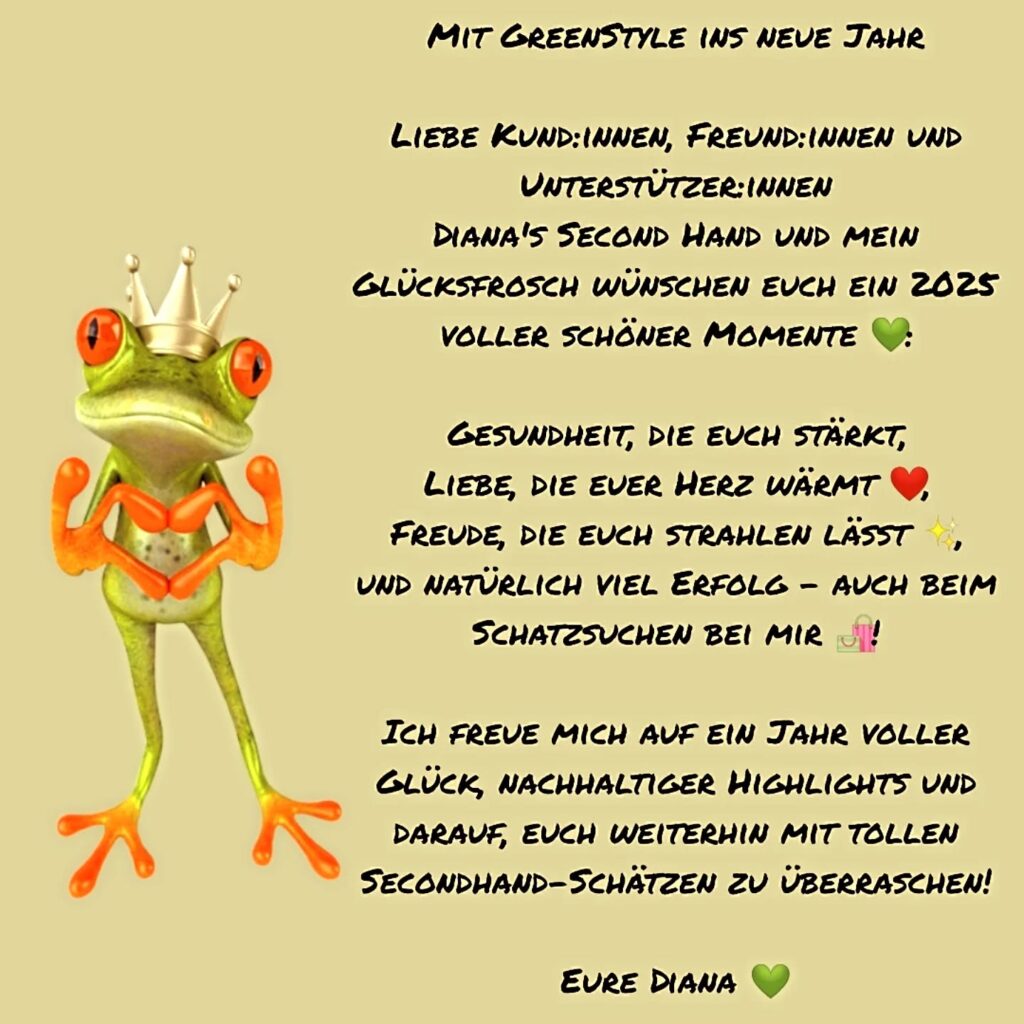 Mit GreenStyle ins neue Jahr
Liebe Kund:innen, Freund:innen und
Unterstützer:innen
Diana's Second Hand und mein
Glücksfrosch wünschen euch ein 2025
voller schöner Momente 💚:
Gesundheit, die euch stärkt,
Liebe, die euer Herz wärmt ❤️,
Freude, die euch strahlen lässt ✨,
und natürlich viel Erfolg – auch beim
Schatzsuchen bei mir 🛍️!
Ich freue mich auf ein Jahr voller
Glück, nachhaltiger Highlights und
darauf, euch weiterhin mit tollen
Secondhand-Schätzen zu überraschen!
Eure Diana 💚